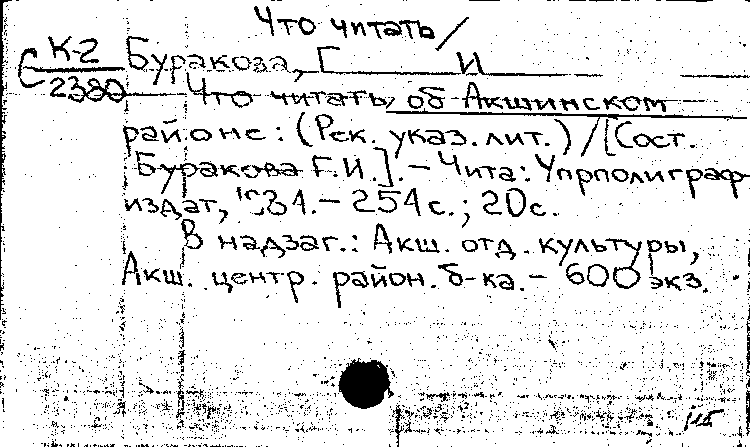 Что читать/
К-2 Буракова, Г И
С 2380 Что читать, об Акшинском
районе: (Рек. указ. лит.) / [Сост.
Буракова Г.И.]. - Чита: Упрполиграф-
издат, 1984. - 254 с.; 20 с.
В надзаг.: Акш. отд. культуры,
Акш. центр. район. б-ка. - 600 экз.